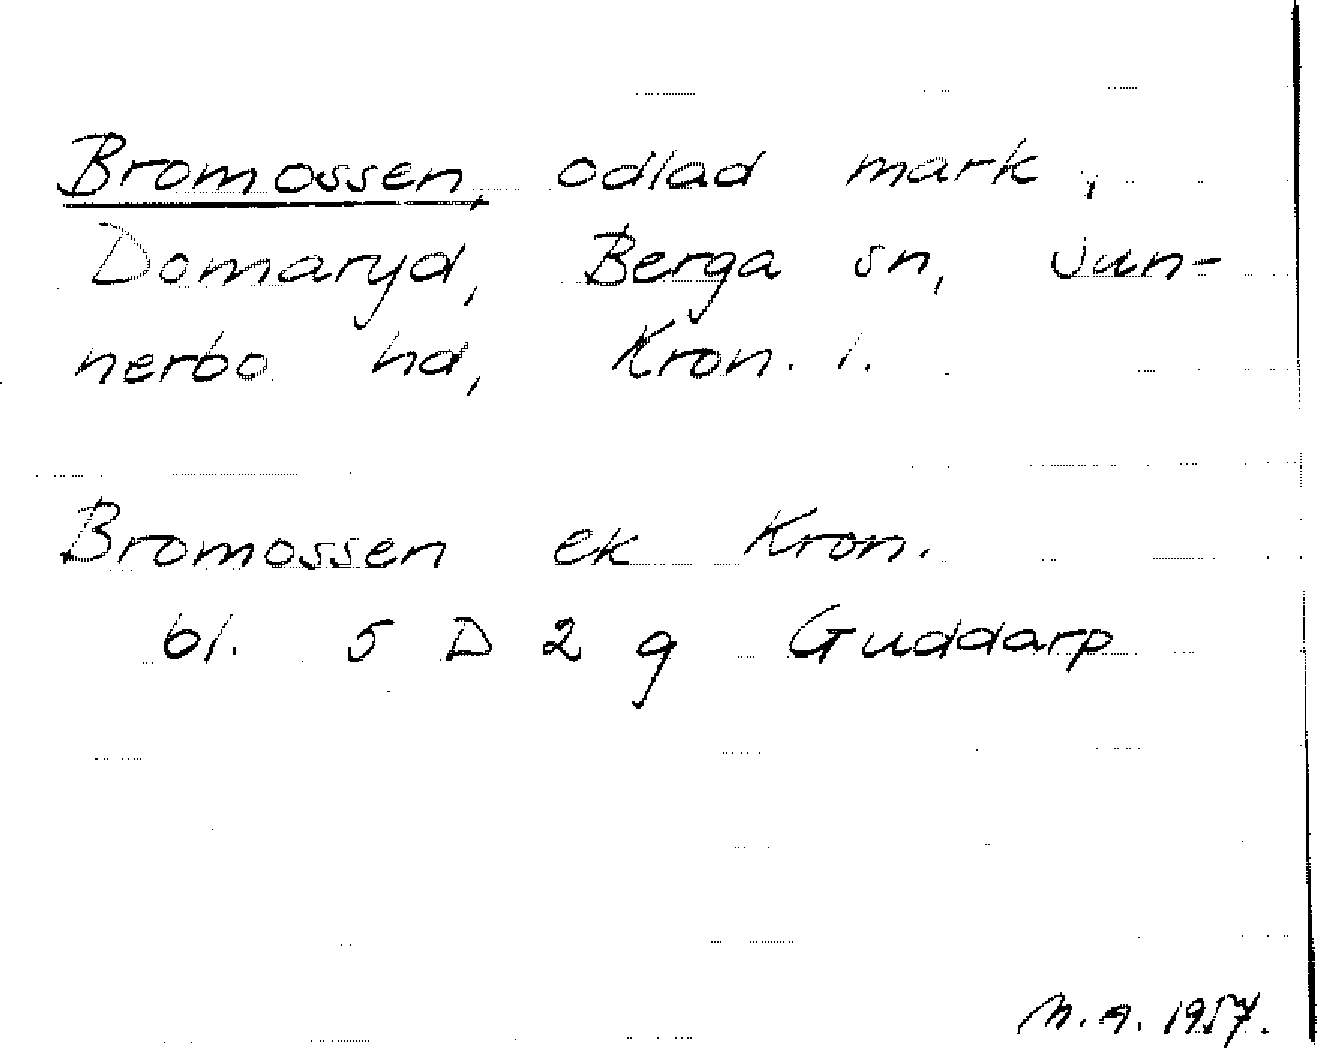 Bromossen, odlad mark,
Domaryd, Berga sn, Sun-
nerbo hd, Kron. l.
Bromossen ek Kron.
bl. 5 D 2 g Guddarp
1957.